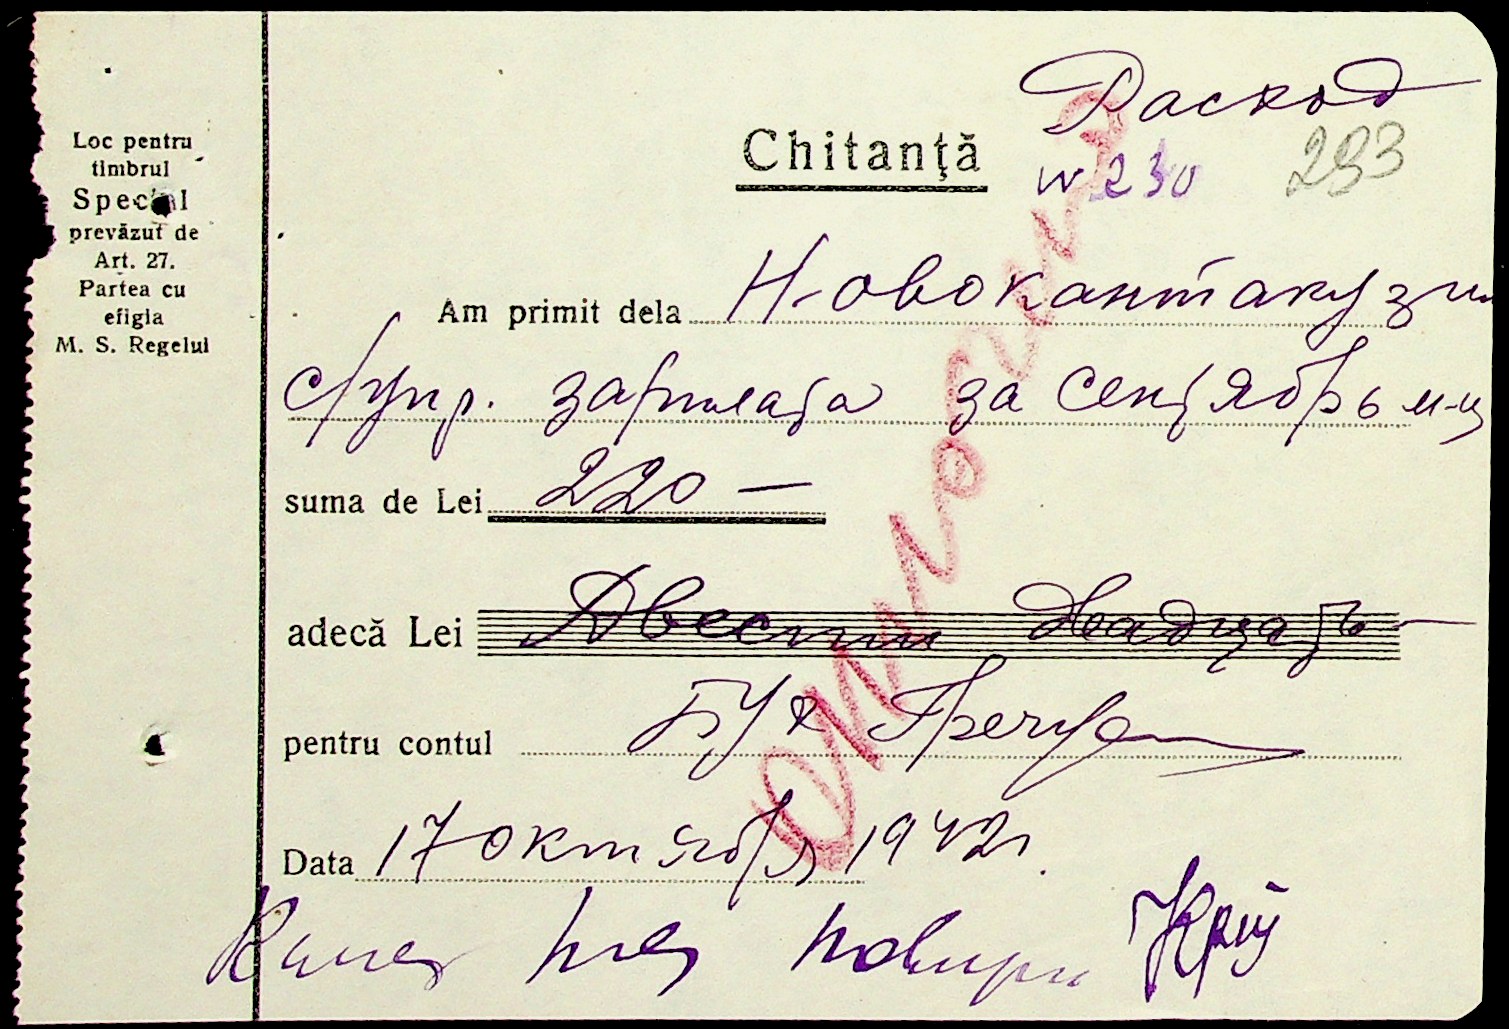 Loc pentru
timbrul
Special
prevăzut de
Art. 27.
Partea cu
efigia
M. S. Regelui
Расход
Chitanţă
N 230
293
Am primit dela Новокантакузин
с/упр. зарплата за сентябрь м-ц
suma de Lei 220 —
adecă Lei Двести двадцать —
pentru contul Бух
Data 17 октября 1942 г.
Оплочени